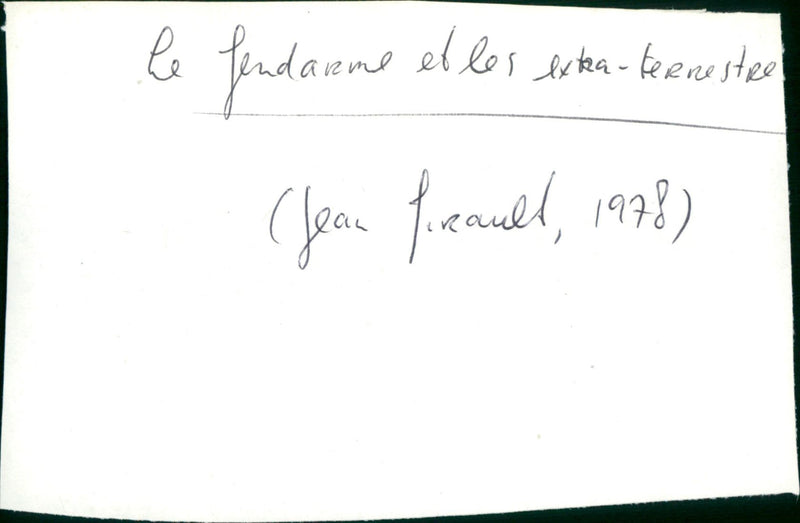 Le gendarme et les extra-terrestre
(Jean Girault, 1978)